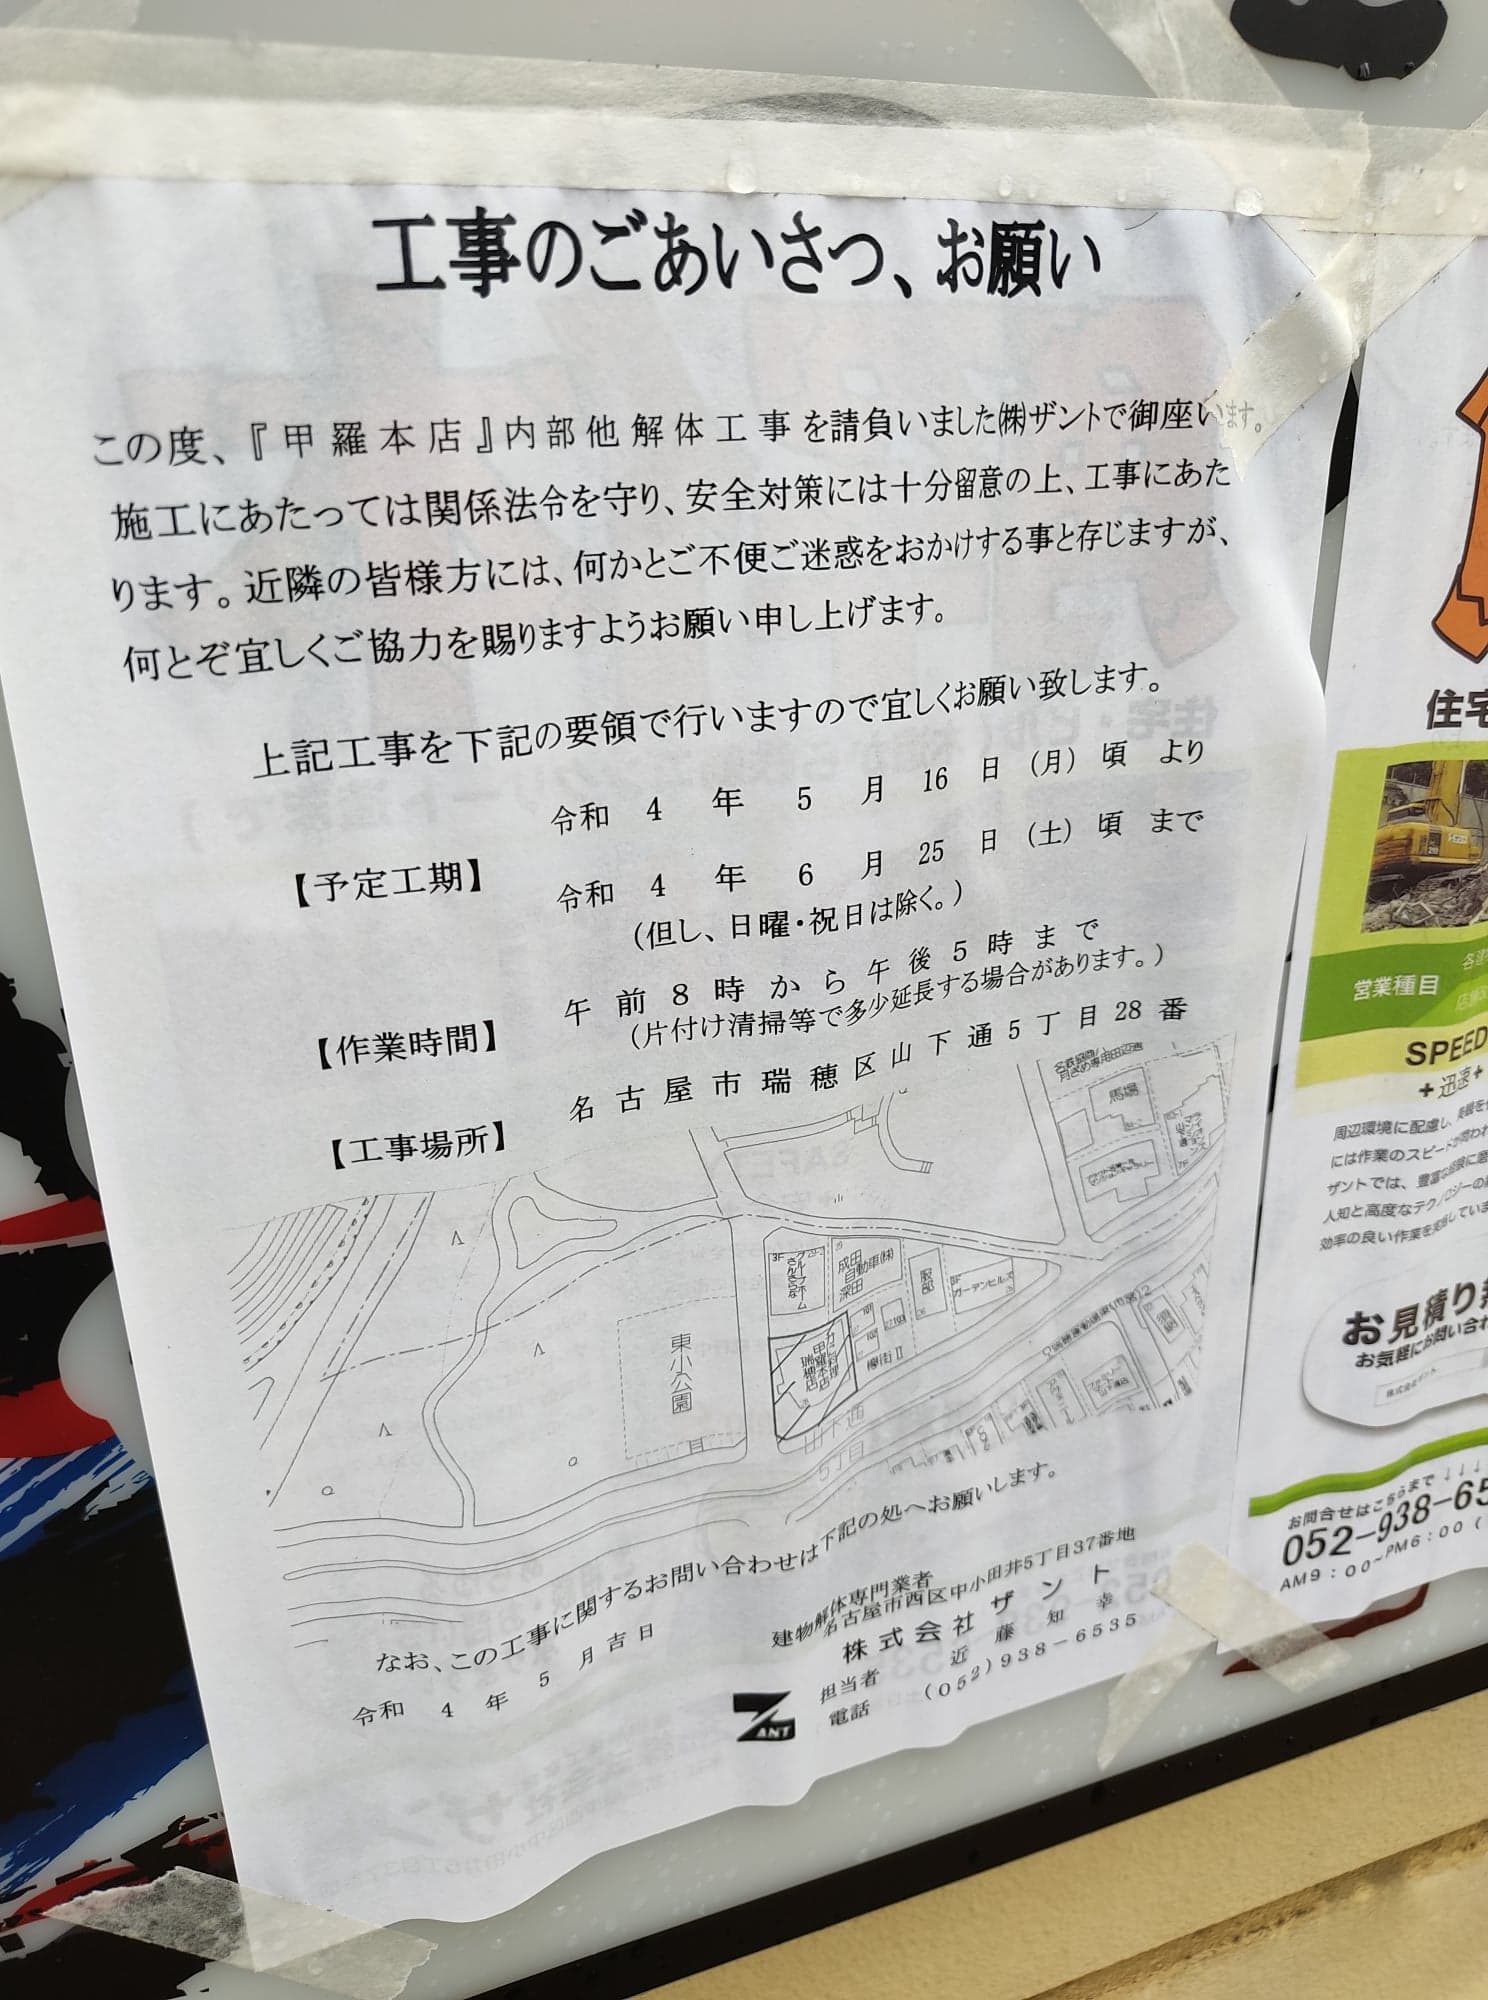 工事のごあいさつ、お願い
この度、『甲羅本店』内部他解体工事を請負いました㈱ザントで御座います。
施工にあたっては関係法令を守り、安全対策には十分留意の上、工事にあた
ります。近隣の皆様方には、何かとご不便ご迷惑をおかけする事と存じますが、
何とぞ宜しくご協力を賜りますようお願い申し上げます。
上記工事を下記の要領で行いますので宜しくお願い致します。
【予定工期】
令和 4 年 5 月 16 日 (月) 頃 より
令和 4 年 6 月 25 日 (土) 頃 まで
(但し、日曜・祝日は除く。)
【作業時間】
午前8時から午後5時まで
(片付け清掃等で多少延長する場合があります。)
【工事場所】
名古屋市瑞穂区山下通5丁目28番
馬場
3F
グループホーム
成田
自動車㈱
深田
服部
ガーデンヒルズ
東小公園
甲羅本店
瑞穂店
欅街Ⅱ
山下通
5丁目
なお、この工事に関するお問い合わせは下記の処へお願いします。
令和 4 年 5 月吉日
建物解体専門業者
名古屋市西区中小田井5丁目37番地
株式会社ザント
担当者 近藤知幸
電話 (052)938-6535
ZANT
住宅
営業種目
SPEED
+迅速+
周辺環境に配慮し、
には作業のスピードが問われ
ザントでは、豊富な経験に
人知と高度なテクノロジーの
効率の良い作業を実施していま
お見積り無
お気軽にお問い合わ
株式会社ザント
お問合せはこちらまで↓↓↓
052-938-65
AM9:00~PM6:00(